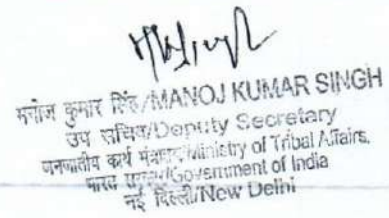 मनोज कुमार सिंह/MANOJ KUMAR SINGH
उप सचिव/Deputy Secretary
जनजातीय कार्य मंत्रालय/Ministry of Tribal Affairs,
भारत सरकार/Government of India
नई दिल्ली/New Delhi